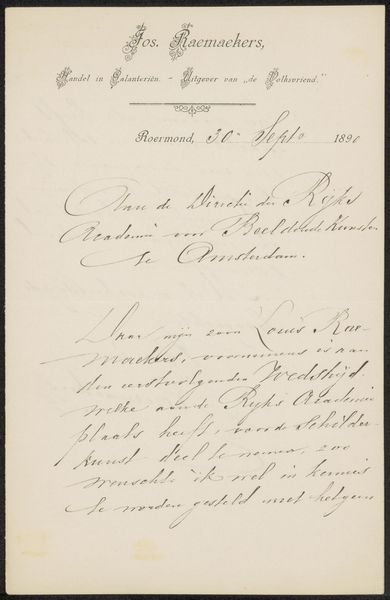 Jos. Raemaekers,
Handel in Galanteriën. - Uitgever van „de Volksvriend."
Roermond, 30 Septr 1890
Aan de Directie der Rijks
Academie voor Beeldende Kunsten
te Amsterdam.
Daar mijn zoon Louis Rae-
maekers, voornemens is aan
den eerstvolgenden Wedstrijd
welke aan de Rijks Academie
plaats heeft, voor de Schilder-
kunst deel te nemen, zoo
wenschte ik wel in kennis
te worden gesteld met hetgeen